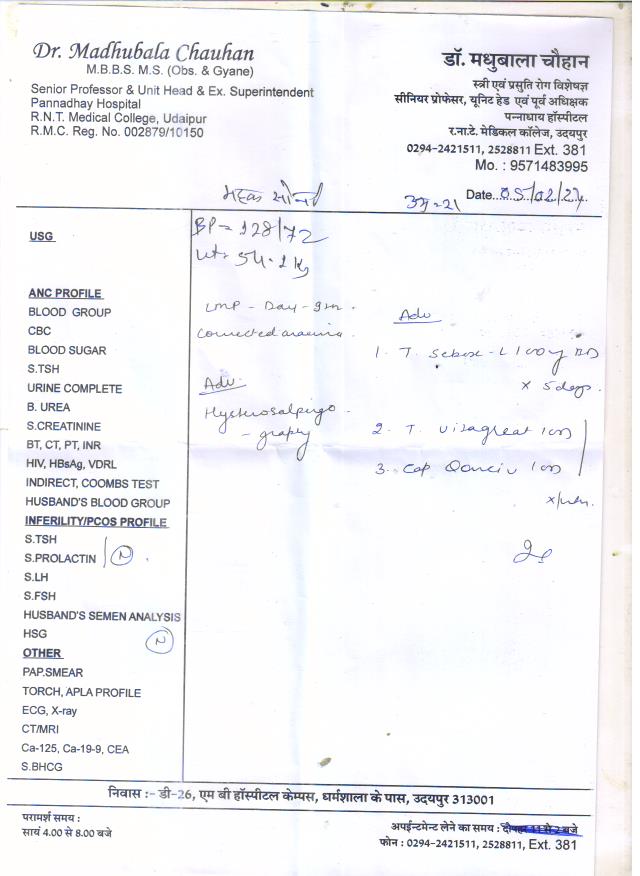 Dr. Madhubala Chauhan
M.B.B.S. M.S. (Obs. & Gyane)
Senior Professor & Unit Head & Ex. Superintendent
Pannadhay Hospital
R.N.T. Medical College, Udaipur
R.M.C. Reg. No. 002879/10150
डॉ. मधुबाला चौहान
स्त्री एवं प्रसुति रोग विशेषज्ञ
सीनियर प्रोफेसर, यूनिट हेड एवं पूर्व अधिक्षक
पन्नाधाय हॉस्पीटल
र.ना.टे. मेडिकल कॉलेज, उदयपुर
0294-2421511, 2528811 Ext. 381
Mo. : 9571483995
महक सोनी
उम्र-21
Date...05/02/24
USG
BP = 128/72
wt. 54.2 kg
ANC PROFILE
BLOOD GROUP
CBC
BLOOD SUGAR
S.TSH
URINE COMPLETE
B. UREA
S.CREATININE
BT, CT, PT, INR
HIV, HBsAg, VDRL
INDIRECT, COOMBS TEST
HUSBAND'S BLOOD GROUP
INFERILITY/PCOS PROFILE
S.TSH
S.PROLACTIN (N)
S.LH
S.FSH
HUSBAND'S SEMEN ANALYSIS
HSG (N)
OTHER
PAP.SMEAR
TORCH, APLA PROFILE
ECG, X-ray
CT/MRI
Ca-125, Ca-19-9, CEA
S.BHCG
LMP - Day -
Corrected anaemia.
Adv.
Hysterosalpigo
- graphy
Adv
1. T. 100mg BD
x 5 days.
2. T. 1 OD
3. Cap 1 OD
निवास :- डी-26, एम बी हॉस्पीटल केम्पस, धर्मशाला के पास, उदयपुर 313001
परामर्श समय :
सायं 4.00 से 8.00 बजे
अपॉइन्टमेन्ट लेने का समय :
फोन : 0294-2421511, 2528811, Ext. 381